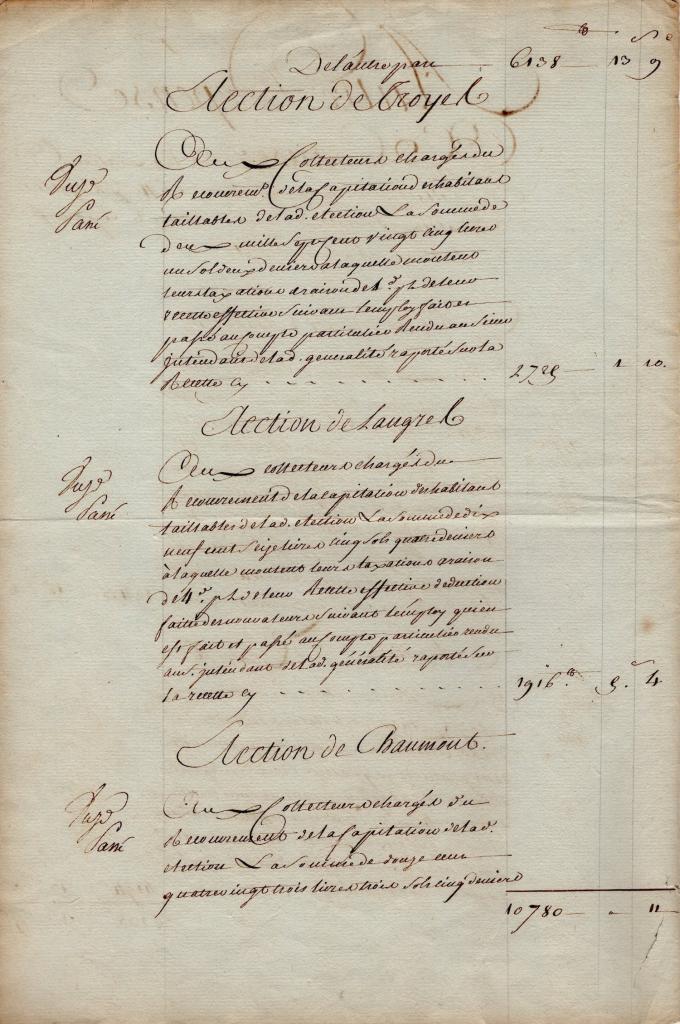 De l'autre part 6138 13 9
Election de Troyes
Aux Collecteurs chargés du
Recouvremt. de la Capitation des habitans
taillables de lad. election La somme de
deux mille sept cent vingt cinq livres
un sol deux deniers a laquelle montent
leurs taxations a raison de 4 d. pl. de leur
recette effective suivant l'employ fait et
passé au compte particulier Rendu au sieur
jntendant de lad. generalité raporté sur la
Recette Cy . . . . . . . 2725 1 10.
Election de Langres
Aux collecteurs chargés du
Recouvrement de la capitation des habitans
taillables de lad. election La somme de dix
neuf cent seize livres cinq sols quatre deniers
à laquelle montent leurs taxations a raison
de 4 d. pl. de leur Recette effective deduction
faite des nouvateurs suivant l'employ qui en
est fait et passé au compte particulier rendu
au s. jntendant de lad. généralité raporté sur
la recette Cy . . . . . . . 1916 5. 4
Election de Chaumont.
Aux Collecteurs chargés du
Recouvrement de la Capitation de lad.
election La somme de douze cent
quatre vingt trois livres trois sols cinq deniers
10780 . 11